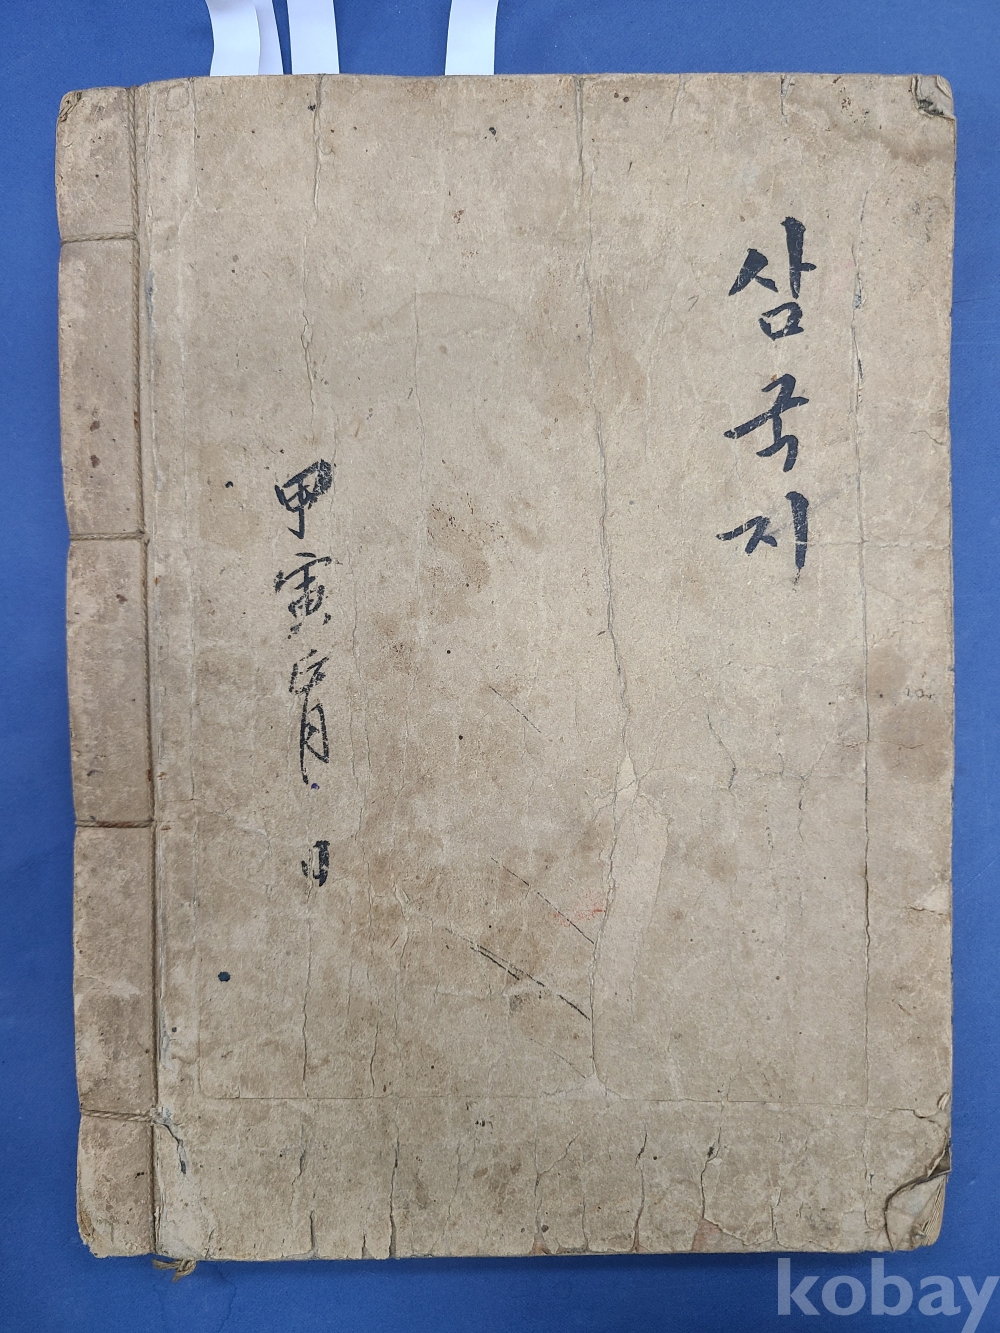 삼국지
甲寅 月 日
kobay